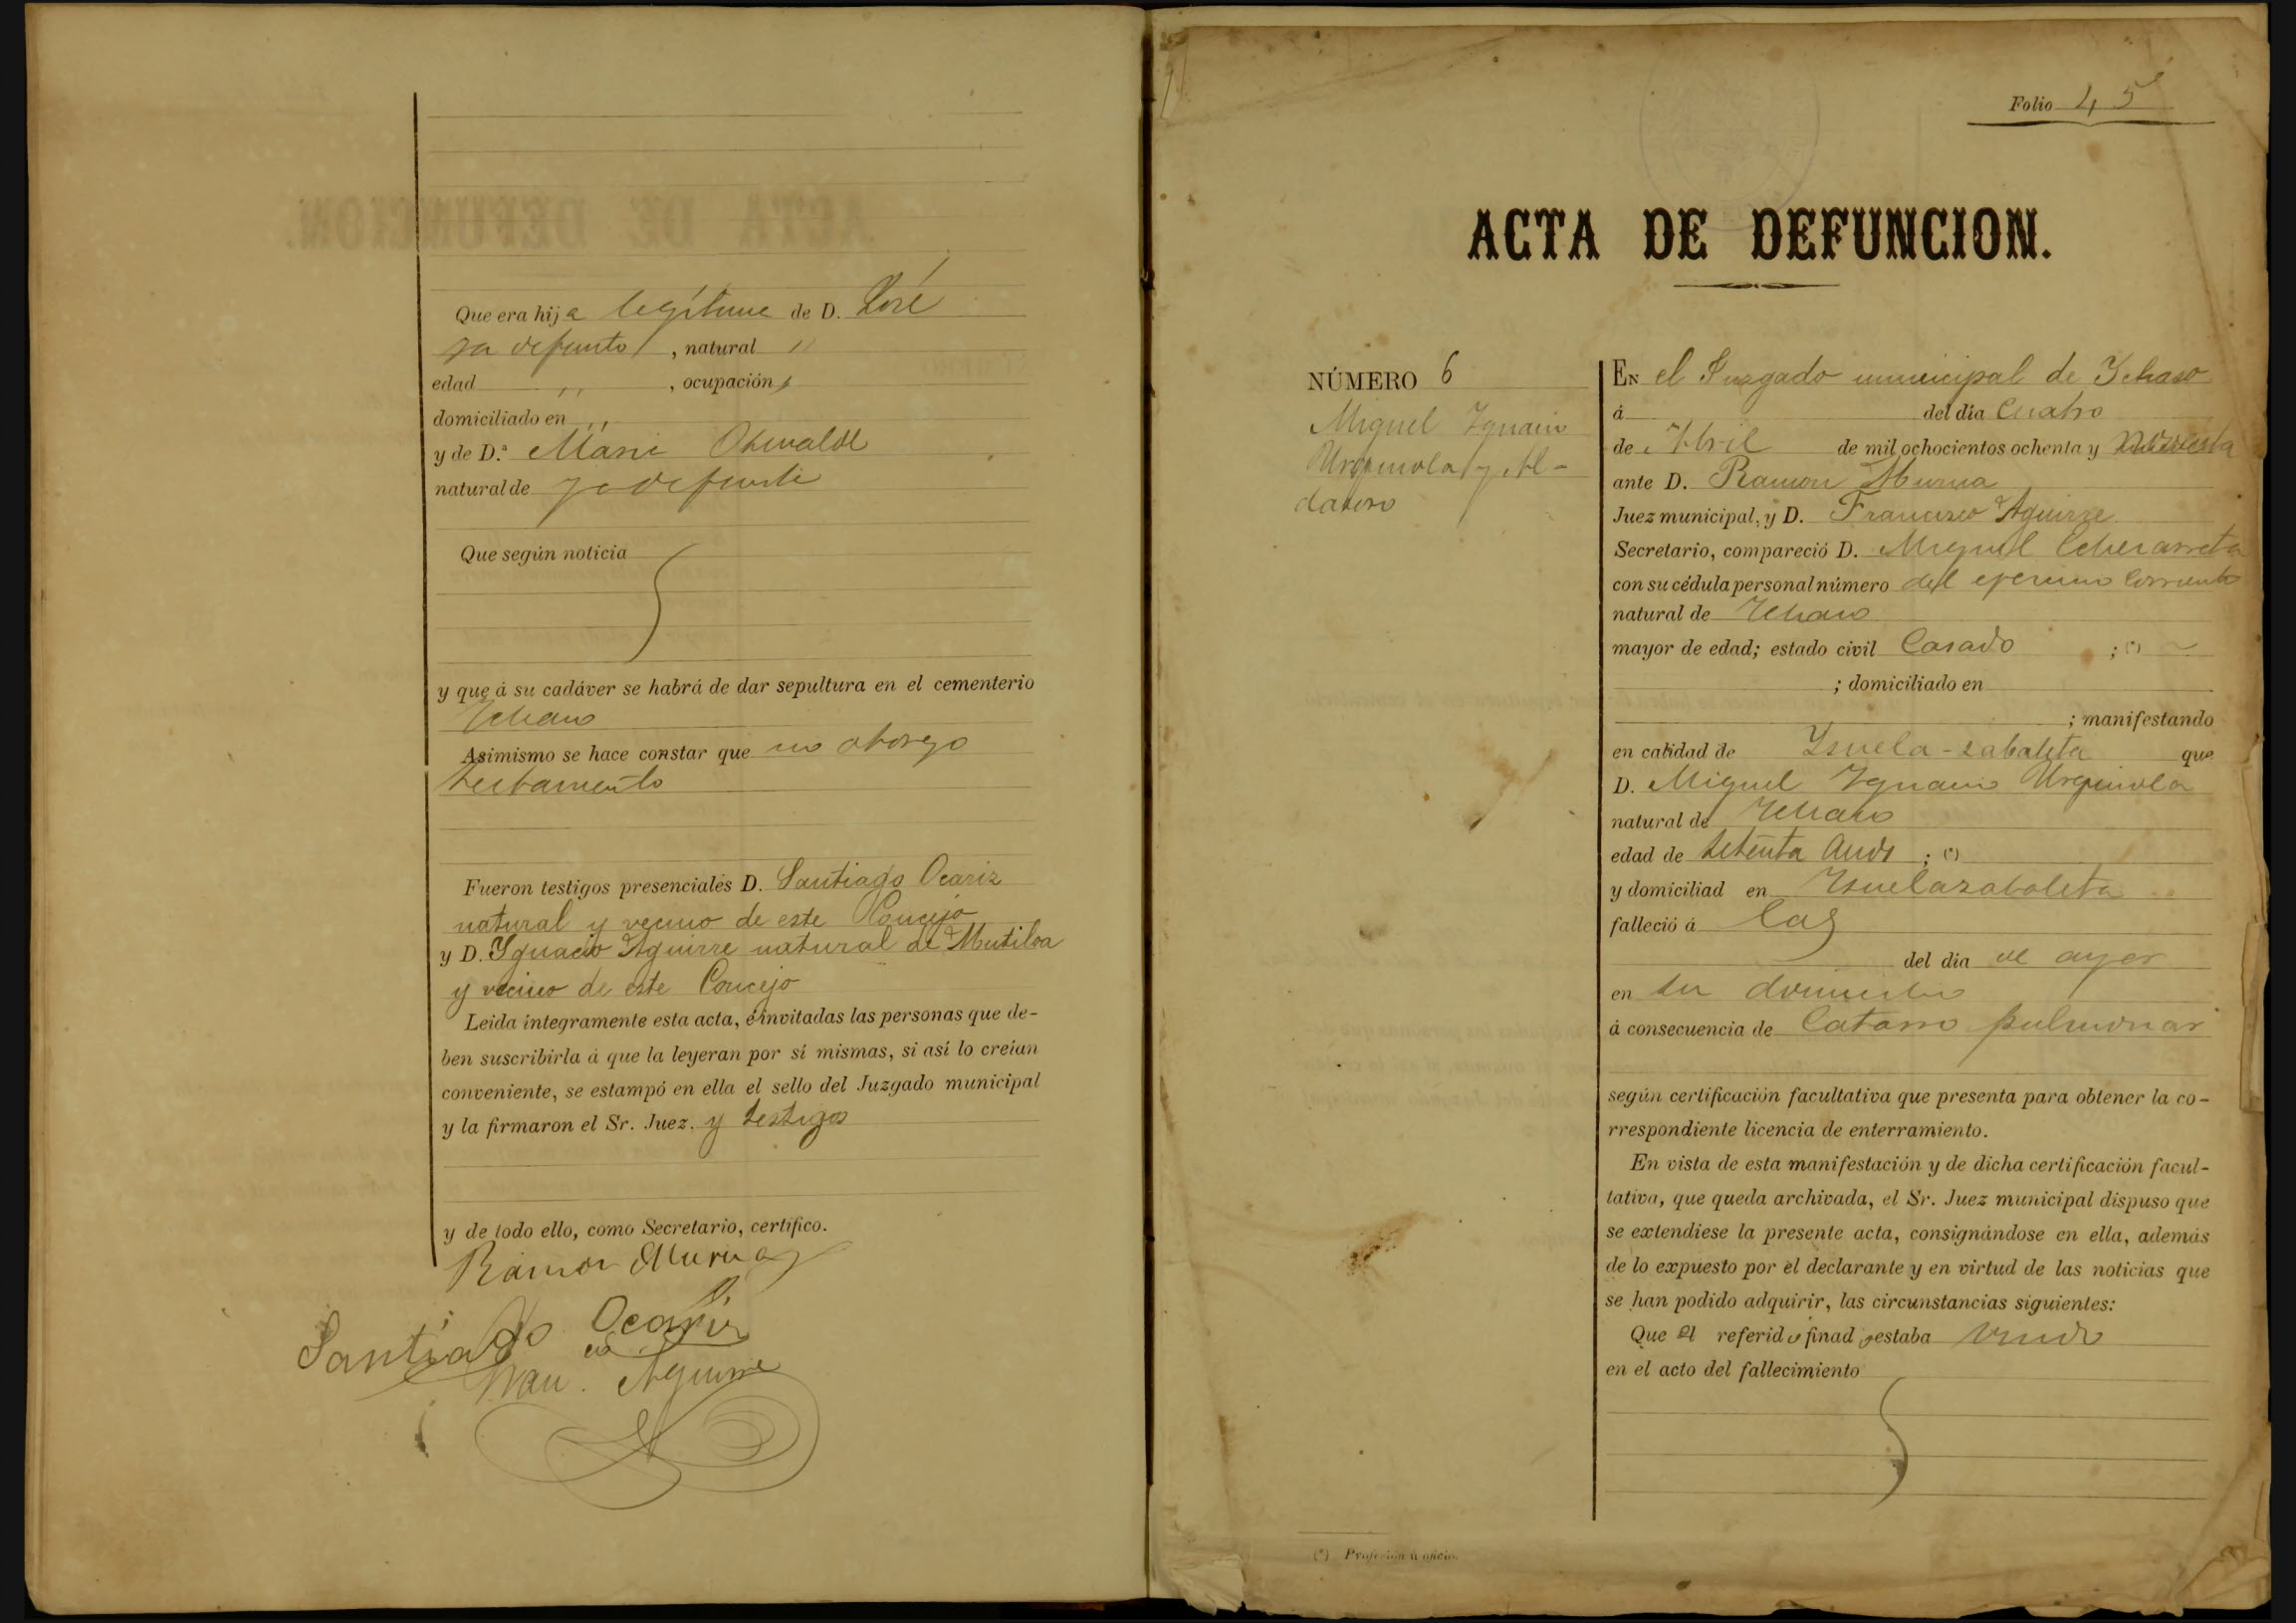 Que era hija legítima de D. José
ya defunto, natural "
edad " , ocupación "
domiciliado en "
y de D.ª Maria
natural de ya defunta
Que según noticia
y que á su cadáver se habrá de dar sepultura en el cementerio
Ichaso
Asimismo se hace constar que no otorgo
testamento
Fueron testigos presenciales D. Santiago Ocariz
natural y vecino de este Concejo
y D. Ygnacio Aguirre natural de Mutiloa
y vecino de este Concejo
Leida íntegramente esta acta, é invitadas las personas que de-
ben suscribirla á que la leyeran por sí mismas, si así lo creían
conveniente, se estampó en ella el sello del Juzgado municipal
y la firmaron el Sr. Juez. y testigos
y de todo ello, como Secretario, certifico.
Ramon Murua
Santiago Ocariz
Fran.co Aguirre
Folio 45
ACTA DE DEFUNCION.
NÚMERO 6
Miguel Ygnacio
Urquiola y Al-
dasoro
EN el Juzgado municipal de Ychaso
á del día Cuatro
de Abril de mil ochocientos ochenta y noventa
ante D. Ramon Murua
Juez municipal, y D. Francisco Aguirre
Secretario, compareció D. Miguel Echezarreta
con su cédula personal número del ejercicio corriente
natural de Ychaso
mayor de edad; estado civil Casado ; (*)
; domiciliado en
; manifestando
en calidad de Ysuela-zabaleta que
D. Miguel Ygnacio Urquiola
natural de Ychaso
edad de setenta años ; (*)
y domiciliad en Ysuelazabaleta
falleció á las
del dia de ayer
en su domicilio
á consecuencia de Catarro pulmonar
según certificación facultativa que presenta para obtener la co-
rrespondiente licencia de enterramiento.
En vista de esta manifestación y de dicha certificación facul-
tativa, que queda archivada, el Sr. Juez municipal dispuso que
se extendiese la presente acta, consignándose en ella, además
de lo expuesto por el declarante y en virtud de las noticias que
se han podido adquirir, las circunstancias siguientes:
Que el referido finado estaba viudo
en el acto del fallecimiento
(*) Profesión ú oficio.